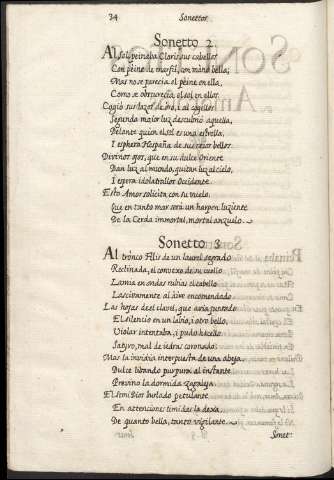 24 Sonettos
Sonetto 2
Al sol peinaba Cloris sus cabellos
Con peine de marfil, con mano bella;
Mas no se parecia el peine en ella,
Como se obscurecia el sol en ellos.
Cogió sus lazos de oro, i al cogellos
Segunda maior luz descubrió aquella,
Delante quien el sol es una estrella,
I esphera Hespaña de sus raios bellos.
Divinos ojos, que en su dulce Oriente
Dan luz al mundo, quitan luz al cielo,
I espera idolatrallos Occidente.
Esto Amor solicita con su vuelo,
Que en tanto mar será un harpon luziente
De la Cerda immortal, mortal anzuelo.
Sonetto 3
Al tronco Filis de un laurel sagrado
Reclinada, el convexo de su cuello
Lamia en ondas rubias el cabello
Lascivamente al aire encomendado
Las hojas de el clavel, que avia juntado
El silencio en un labio, i otro bello,
Violar intentaba, i pudo hacello
Satyro, mal de iedras coronado:
Mas la invidia interpuesta de una abeja,
Dulce libando purpura, al instante
Previno la dormida zagaleja.
El semidios burlado petulante
En attenciones timidas la dexa,
De quanto bella, tanto vigilante.
Sonet